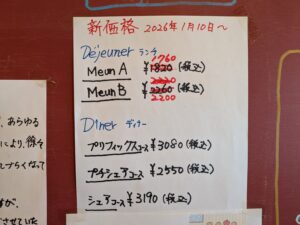 新価格 2026年1月10日〜
Déjeuner ランチ
1760
Meun A ¥1820 (税込)
2220
Meun B ¥2260 (税込)
2200
Dîner ディナー
プリフィックスコース ¥3080 (税込)
プチシェアコース ¥2550 (税込)
シェアコース ¥3190 (税込)
、あらゆる
により、徐々
しづらくなって
すが、
させていた